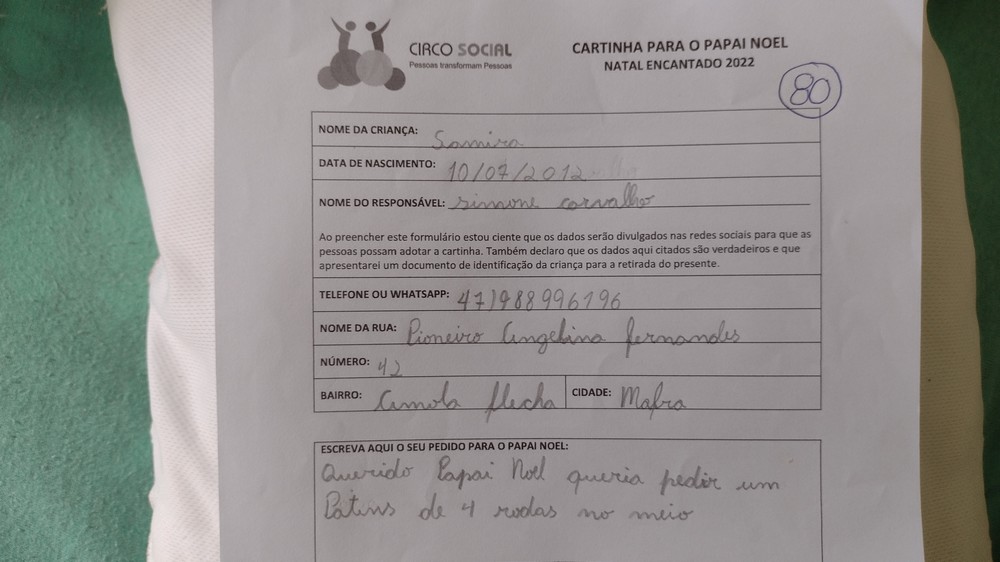 CIRCO SOCIAL
Pessoas transformam Pessoas
CARTINHA PARA O PAPAI NOEL
NATAL ENCANTADO 2022
80
NOME DA CRIANÇA: Samira
DATA DE NASCIMENTO: 10/07/2012
NOME DO RESPONSÁVEL: simone carvalho
Ao preencher este formulário estou ciente que os dados serão divulgados nas redes sociais para que as
pessoas possam adotar a cartinha. Também declaro que os dados aqui citados são verdadeiros e que
apresentarei um documento de identificação da criança para a retirada do presente.
TELEFONE OU WHATSAPP: 47)988996196
NOME DA RUA: Pioneiro Angelina fernandes
NÚMERO: 42
BAIRRO: Amola flecha CIDADE: Mafra
ESCREVA AQUI O SEU PEDIDO PARA O PAPAI NOEL:
Querido Papai Noel queria pedir um
Patins de 4 rodas no meio